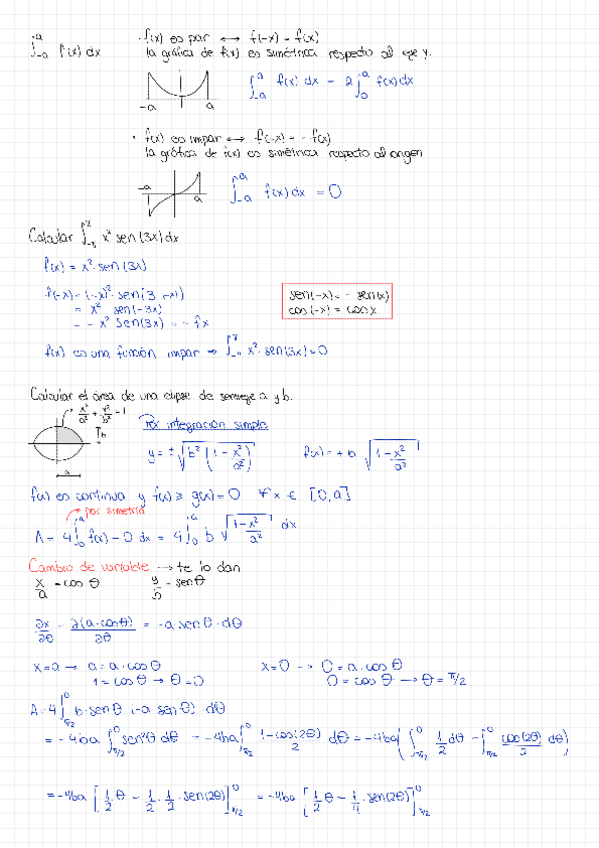 ∫_{-a}^{a} f(x) dx
· f(x) es par ⟷ f(-x) = f(x)
la gráfica de f(x) es simétrica respecto al eje y.
-a a
∫_{-a}^{a} f(x) dx = 2∫_{0}^{a} f(x) dx
· f(x) es impar ⟷ f(-x) = -f(x)
la gráfica de f(x) es simétrica respecto al origen
-a a
∫_{-a}^{a} f(x) dx = 0
Calcular ∫ x² sen(3x) dx
f(x) = x² · sen(3x)
f(-x) = (-x)² · sen(3 · -x)
= x² · sen(-3x)
= - x² sen(3x) = - fx
sen(-x) = - sen(x)
cos(-x) = cos x
f(x) es una función impar → ∫ x² · sen(3x) = 0
Calcular el área de una elipse de semieje a y b.
x²/a² + y²/b² = 1
b
a
Por integración simple
y = ±√(b² (1 - x²/a²))
f(x) = + b √(1 - x²/a²)
f(x) es continua y f(x) ≥ g(x) = 0 ∀ x ∈ [0, a]
por simetría
A = 4∫_{0}^{a} f(x) - 0 dx = 4∫_{0}^{a} b √(1 - x²/a²) dx
Cambio de variable → te lo dan
x/a = cos θ y/b = sen θ
∂x/∂θ = ∂(a · cos θ)/∂θ = -a sen θ · dθ
x = a → a = a · cos θ
1 = cos θ → θ = 0
x = 0 → 0 = a · cos θ
0 = cos θ → θ = π/2
A = 4∫_{π/2}^{0} b · sen θ (-a sen θ) dθ
= -4ba ∫_{π/2}^{0} sen²θ dθ = -4ba ∫_{π/2}^{0} (1 - cos(2θ))/2 dθ = -4ba (∫_{π/2}^{0} 1/2 dθ - ∫_{π/2}^{0} cos(2θ)/2 dθ)
= -4ba [1/2 θ - 1/2 · 1/2 · sen(2θ)]_{π/2}^{0} = -4ba [1/2 θ - 1/4 · sen(2θ)]_{π/2}^{0}